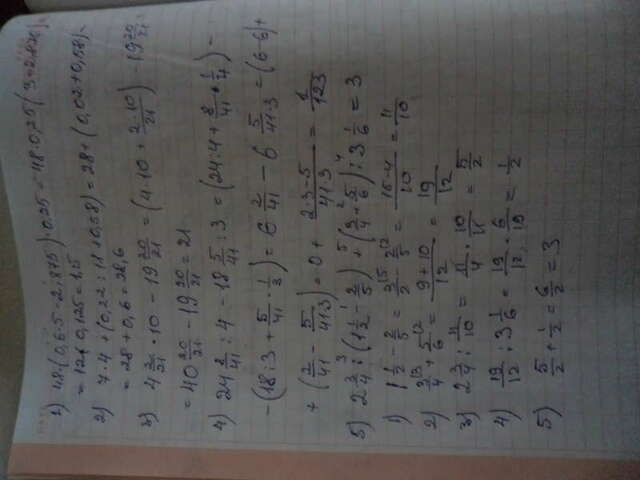 1) 48·(0,6·5 - 2,875)·0,25 = 48·0,25·(3 - 2,875) =
= 12·0,125 = 1,5
2) 7·4 + (0,22:11 + 0,58) = 28 + (0,02 + 0,58) =
= 28 + 0,6 = 28,6
3) 4 2/21 · 10 - 19 20/21 = (4·10 + 2·10/21) - 19 20/21 =
= 40 20/21 - 19 20/21 = 21
4) 24 8/41 : 4 - 18 5/41 : 3 = (24:4 + 8/41 · 1/4) -
- (18:3 + 5/41 · 1/3) = 6 2/41 - 6 5/41·3 = (6-6) +
+ (2/41 - 5/41·3) = 0 + 2·3-5/41·3 = 1/123
5) 2 3/4 : (1 1/2 - 2/5) + (3/4 + 5/6) : 3 1/6 = 3
1) 1 1/2 - 2/5 = 3/2 - 2/5 = 15-4/10 = 11/10
2) 3/4 + 5/6 = 9+10/12 = 19/12
3) 2 3/4 : 11/10 = 11/4 · 10/11 = 5/2
4) 19/12 : 3 1/6 = 19/12 · 6/19 = 1/2
5) 5/2 + 1/2 = 6/2 = 3